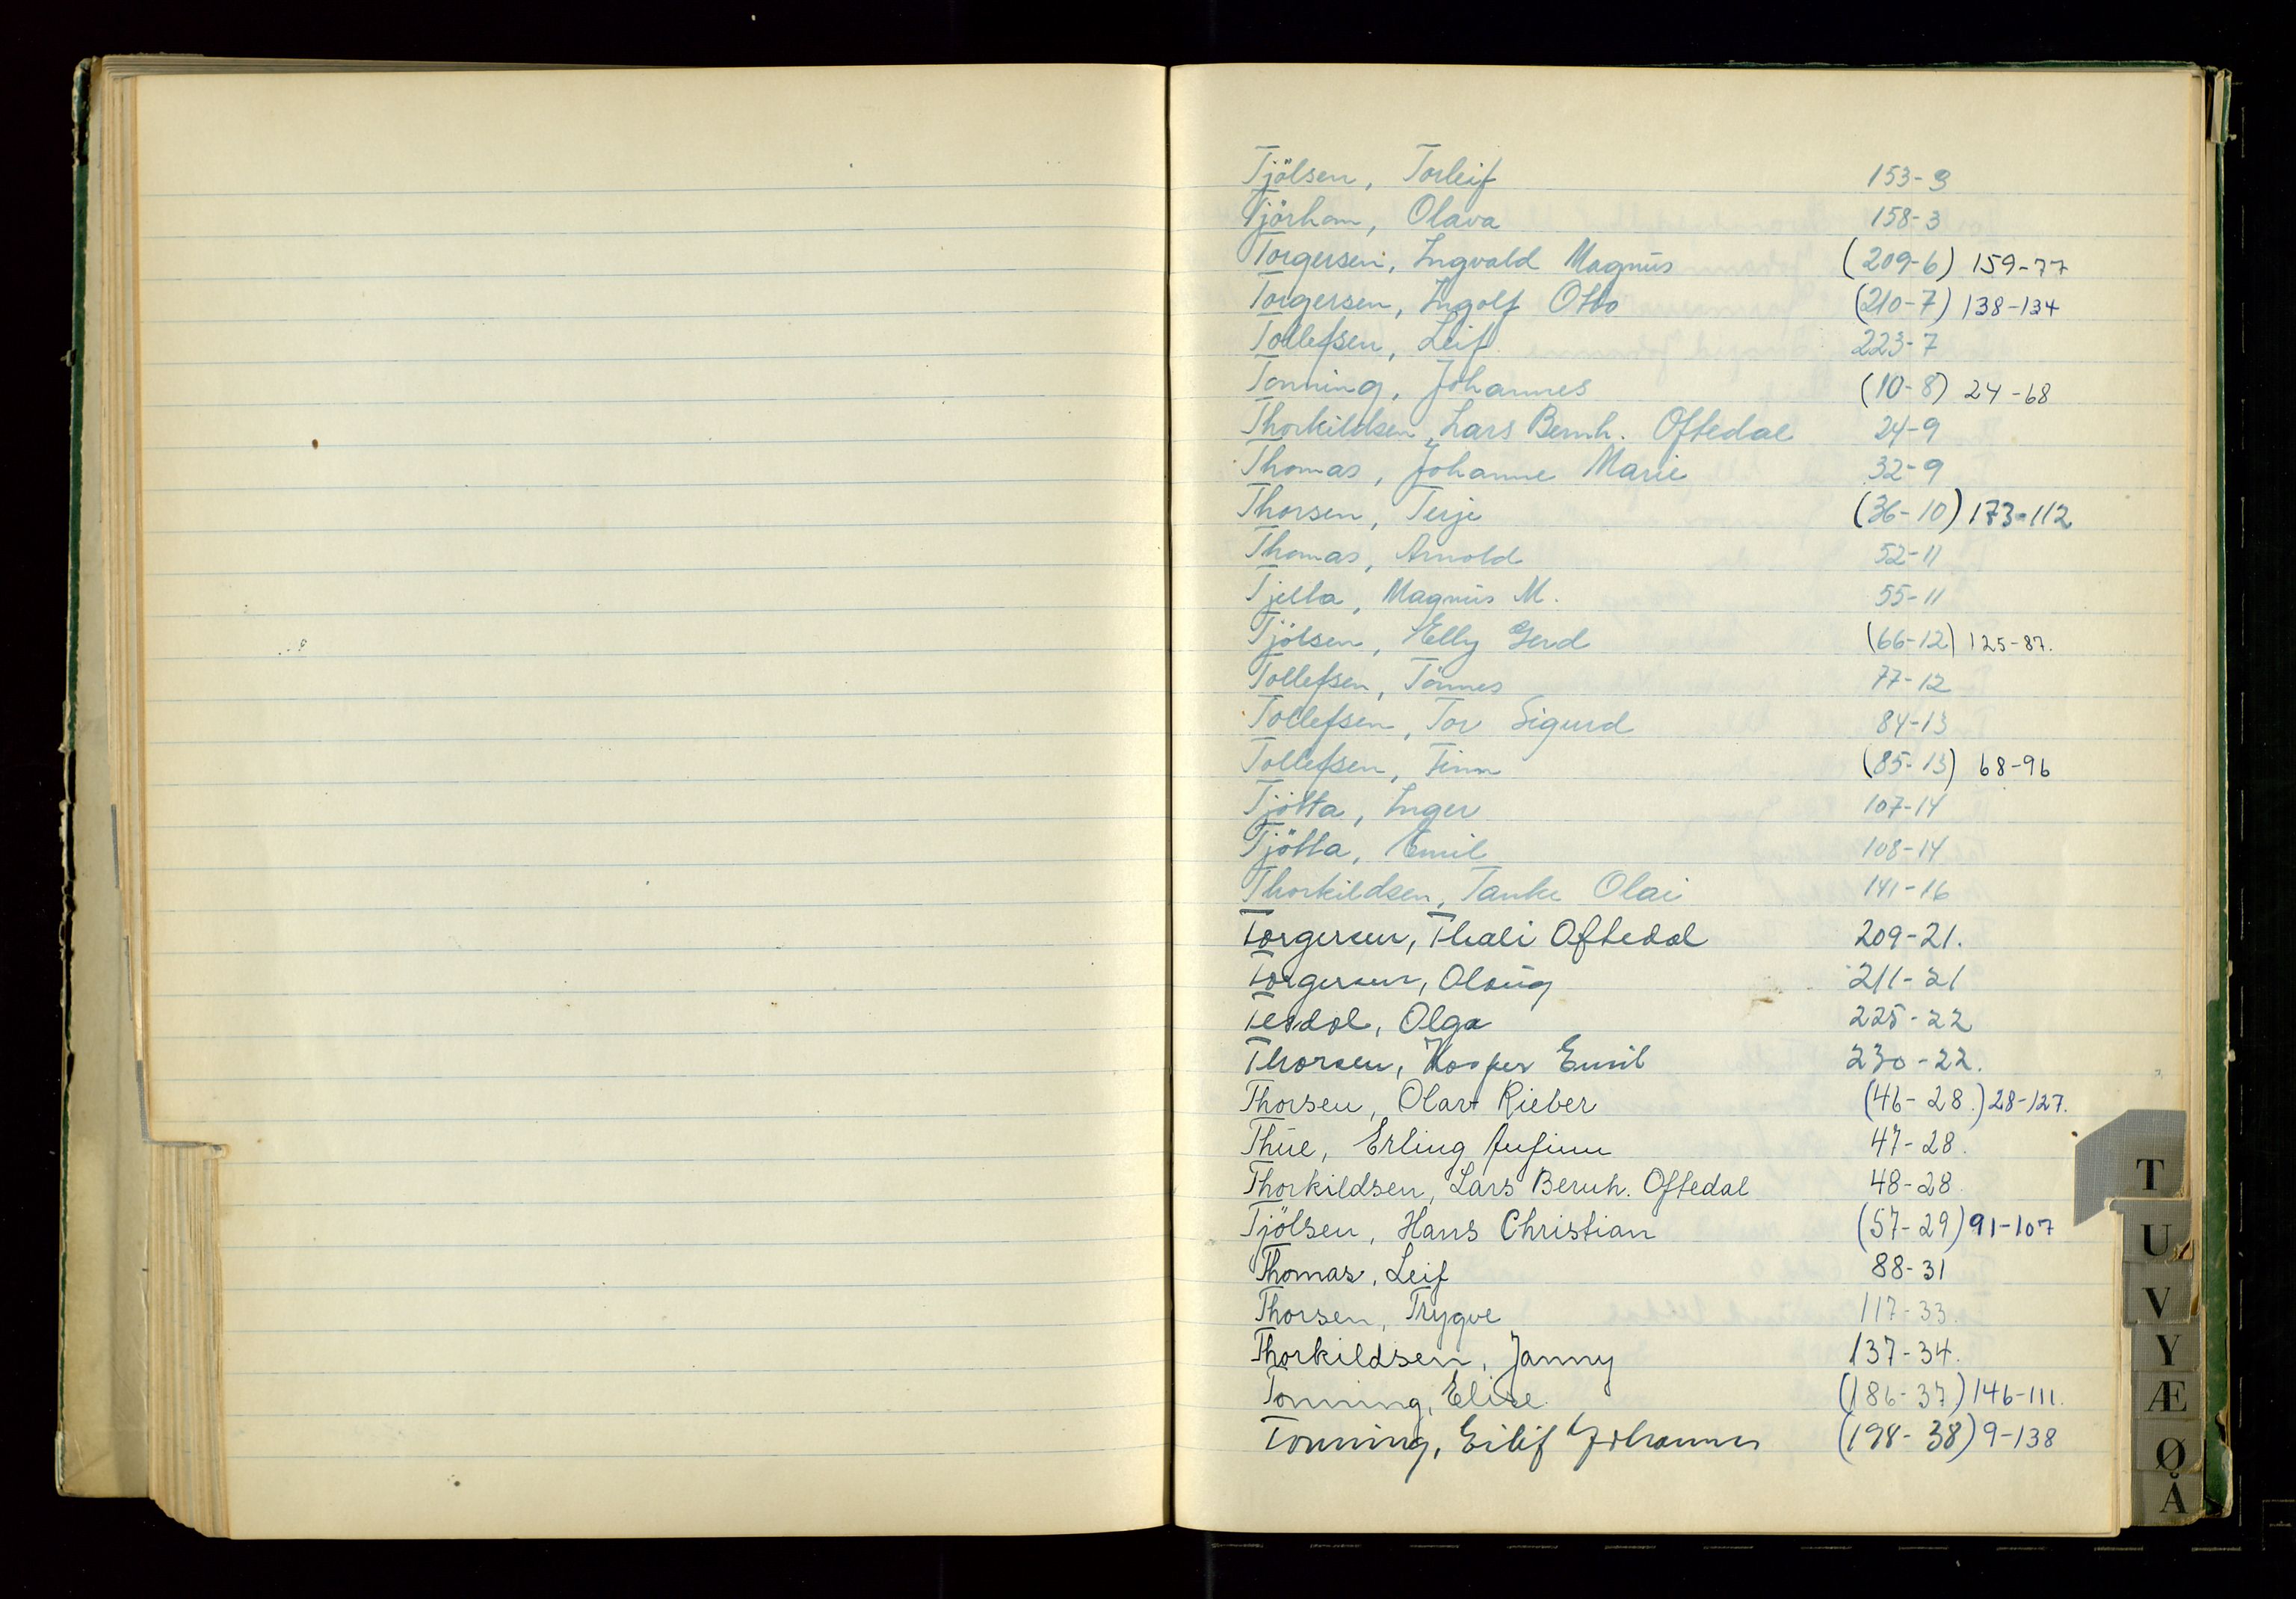 Tjölsen, Torleif 153-3
Tjörhom, Olava 158-3
Torgersen, Ingvald Magnus (209-6) 159-77
Torgersen, Ingolf Otto (210-7) 138-134
Tollefsen, Leif 223-7
Tonning, Johannes (10-8) 24-68
Thorkildsen, Lars Bernh. Oftedal 24-9
Thomas, Johanne Marie 32-9
Thorsen, Terje (36-10) 173-112
Thomas, Arnold 52-11
Tjelta, Magnus M. 55-11
Tjölsen, Elly Gerd (66-12) 125-87.
Tollefsen, Tönnes 77-12
Tollefsen, Tor Sigurd 84-13
Tollefsen, Finn (85-13) 68-96
Tjötta, Inger 107-14
Tjötta, Emil 108-14
Thorkildsen, Tanke Olai 141-16
Torgersen, Thali Oftedal 209-21.
Torgersen, Olaug 211-21
Tesdal, Olga 225-22
Thorsen, Kasper Emil 230-22.
Thorsen, Olav Rieber (46-28.) 28-127.
Thue, Erling Anfinn 47-28.
Thorkildsen, Lars Bernh. Oftedal 48-28
Tjölsen, Hans Christian (57-29) 91-107
Thomas, Leif 88-31
Thorsen, Trygve 117-33.
Thorkildsen, Janny 137-34.
Tonning, Elise (186-37) 146-111.
Tonning, Eilif Johannes (198-38) 9-138
T
U
V
Y
Æ
Ø
Å